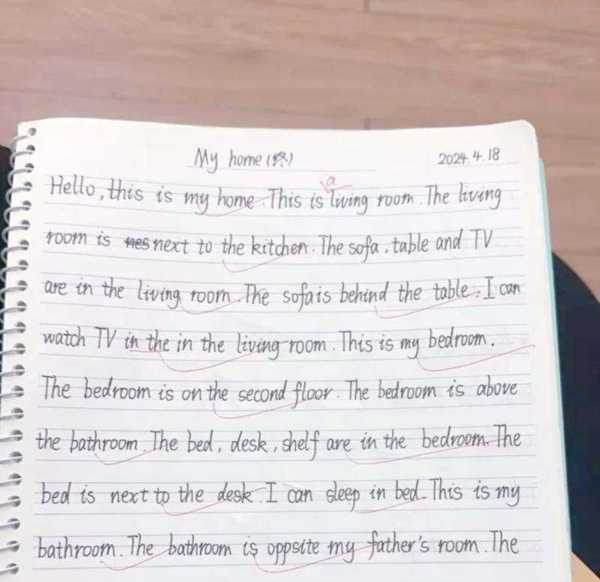 My home (终) 2024.4.18
Hello, this is my home. This is a living room. The living
room is nes next to the kitchen. The sofa, table and TV
are in the living room. The sofa is behind the table. I can
watch TV in the in the living room. This is my bedroom.
The bedroom is on the second floor. The bedroom is above
the bathroom. The bed, desk, shelf are in the bedroom. The
bed is next to the desk. I can sleep in bed. This is my
bathroom. The bathroom is oppsite my father's room. The